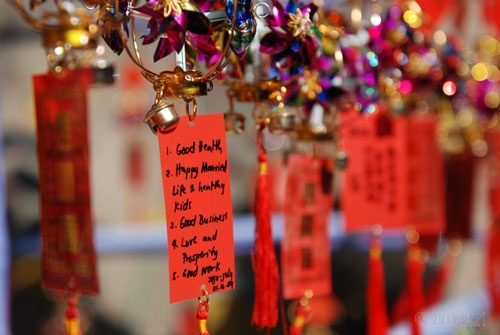 1. Good Health,
2. Happy Married
Life & healthy
Kids
3. Good Business
4. Love and
Prosperity
5. Good Work